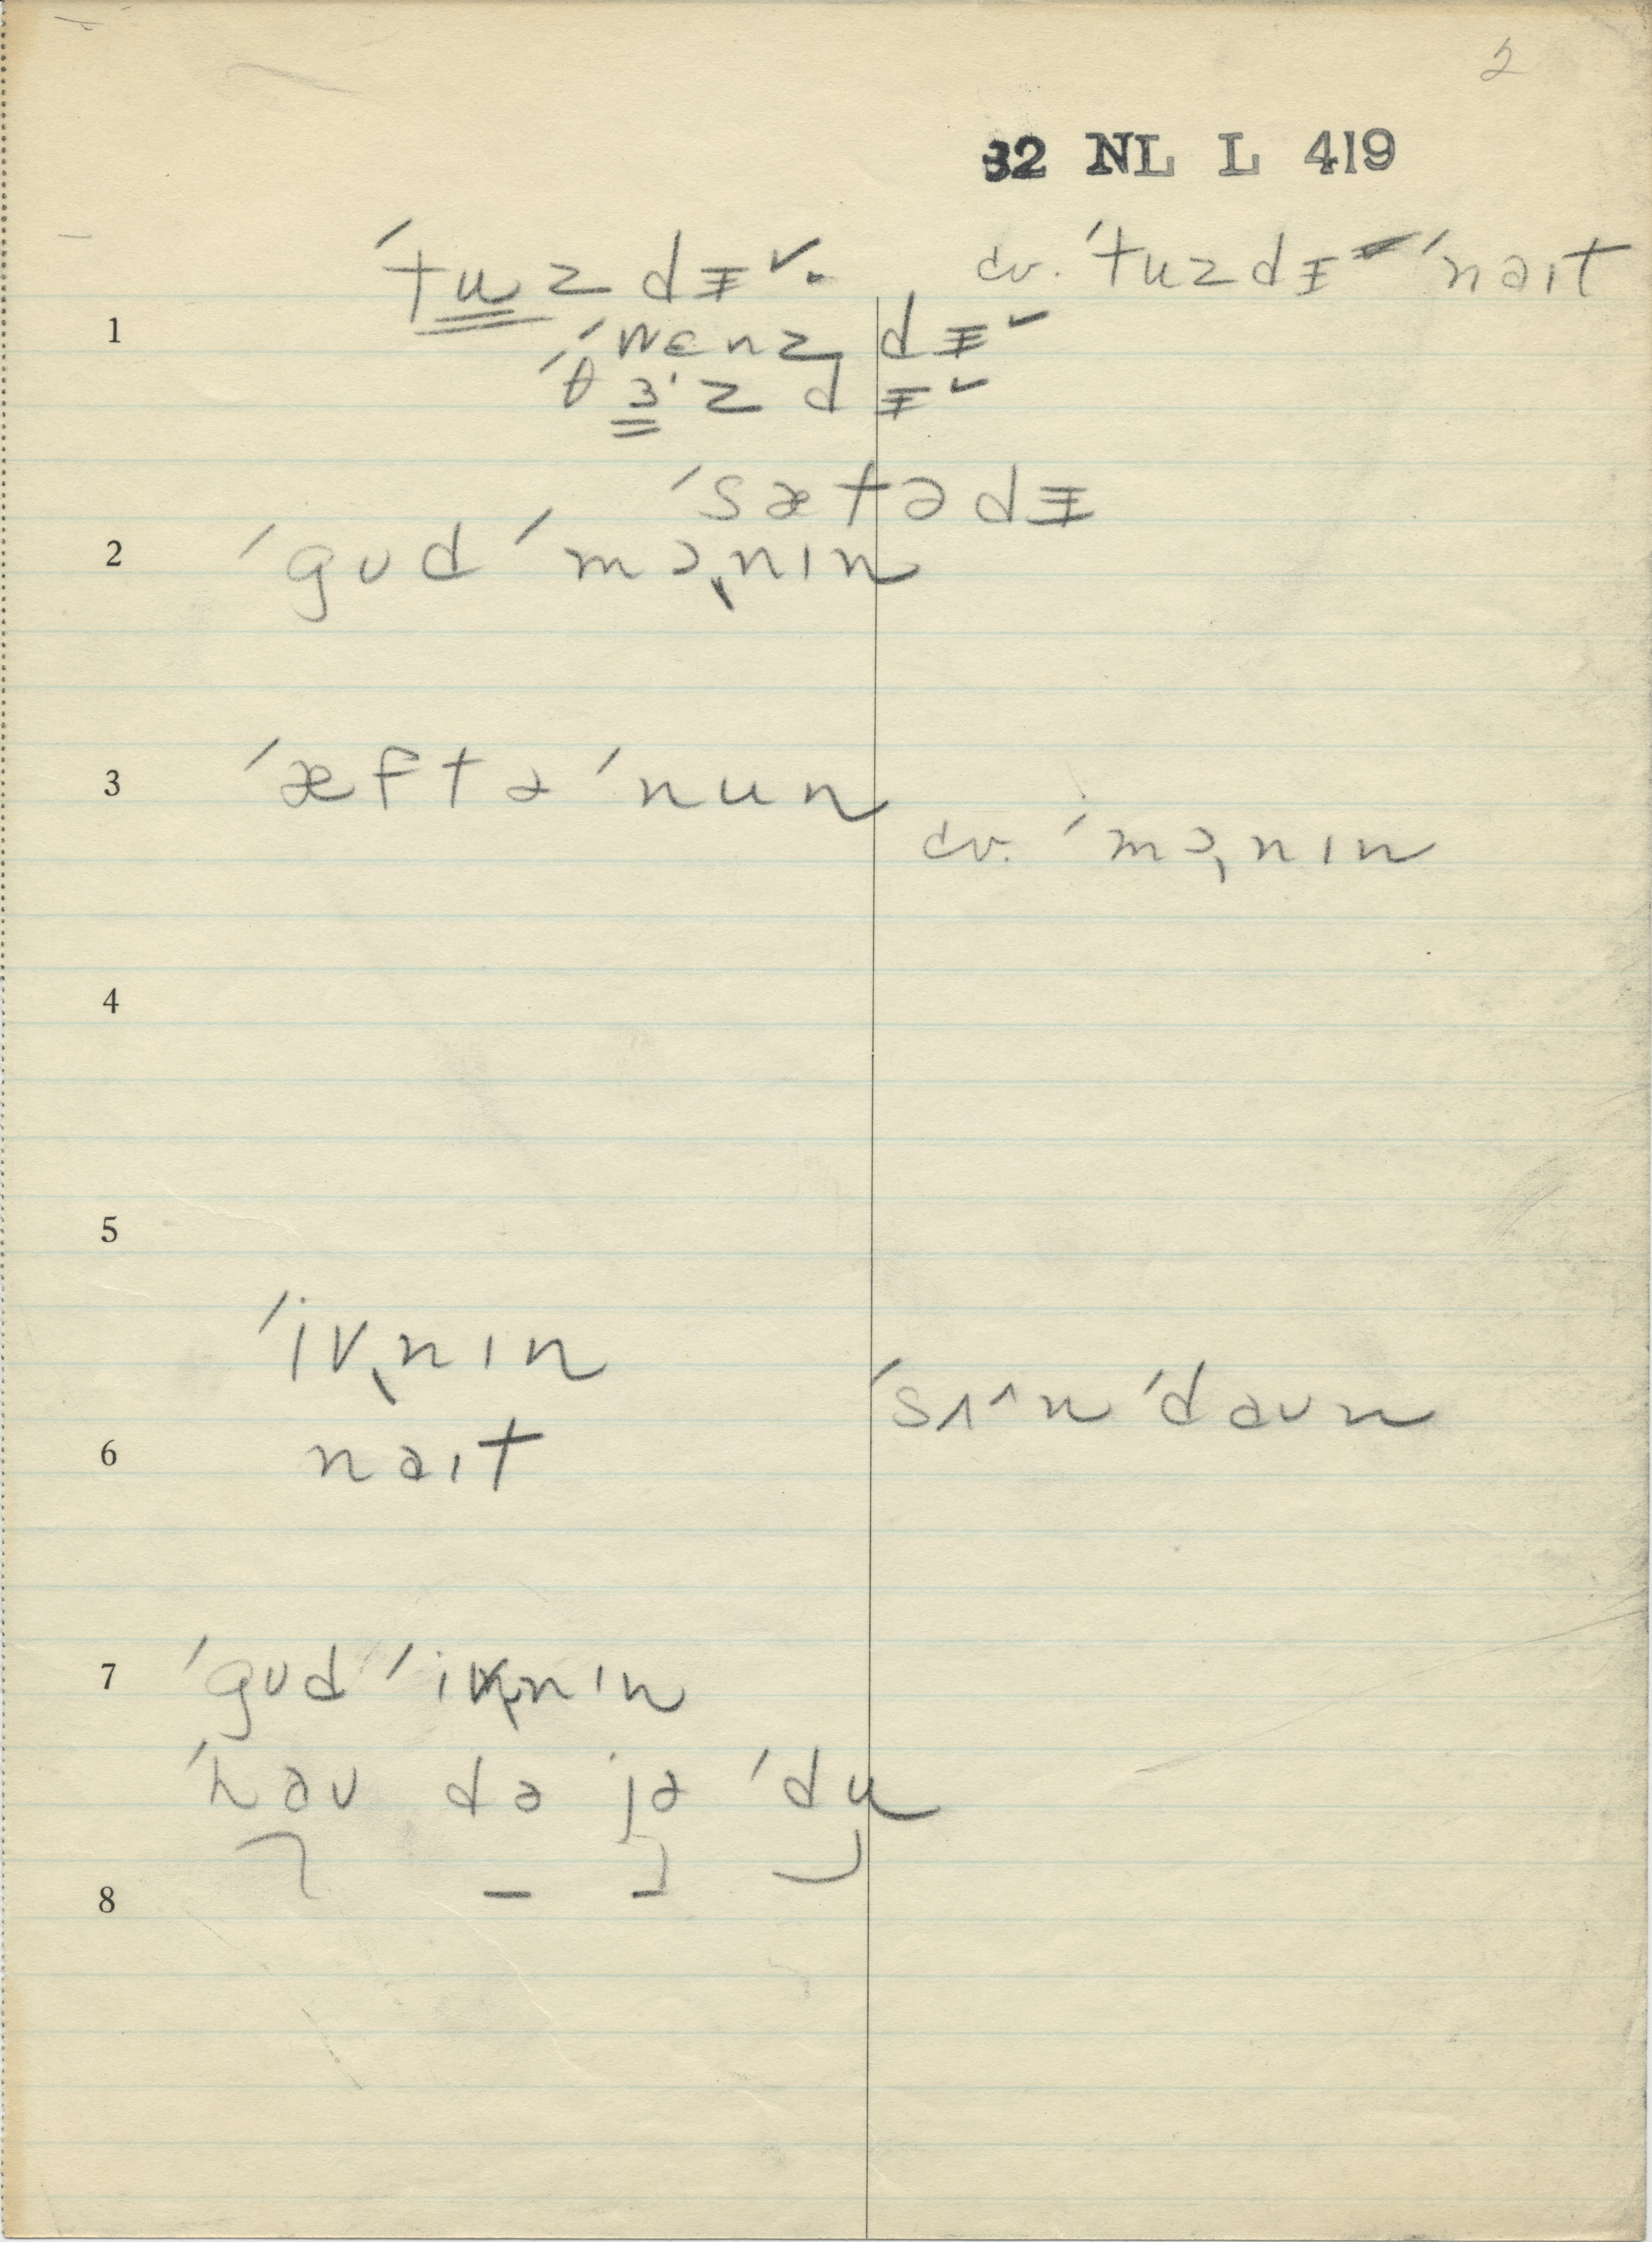 2
32 NL L 419
ˈtuzdɪ̵ˇ. cv. ˈtuzdɪ̵ ˈnaɪt
1
ˈwɛnzdɪ̵ˇ
ˈθɜˈzdɪ̵ˇ
ˈsætədɪ̵
2 ˈgʊd ˈmɔˌnɪn
3 ˈæftəˈnun
cv. ˈmɔˌnɪn
4
5
ˈivˌnɪn
ˈsʌ^nˈdaʊn
6 naɪt
7 ˈgʊd ˈivˌnɪn
ˈhaʊ də jə ˈdu
8